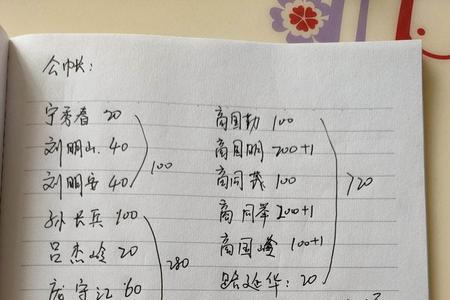 公巾长:
宁秀春 20
刘明山. 40
刘明安 40
100
孙长兵 100
吕杰岭 20
庞守江 60
280
商国勤 100
商国明 200+1
商同英 100
商同举 200+1
商国峰 100+1
路延华: 20
720